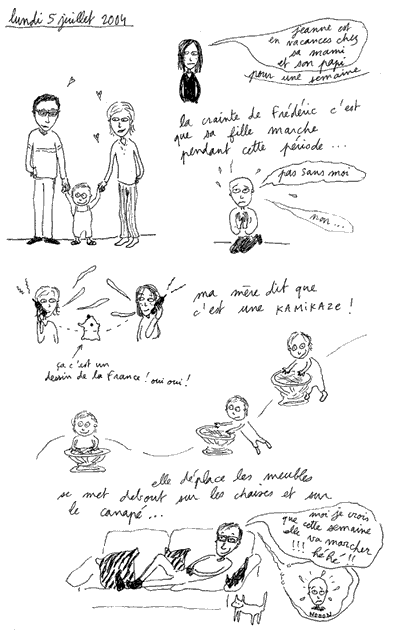 lundi 5 juillet 2004
jeanne est
en vacances chez
sa mami
et son papi
pour une semaine
la crainte de Frédéric c'est
que sa fille marche
pendant cette période...
pas sans moi
non...
ma mère dit que
c'est une KAMIKAZE !
ça c'est un
dessin de la France ! oui oui !
elle déplace les meubles
se met debout sur les chaises et sur
le canapé...
moi je crois
que cette semaine
elle va marcher
!!! héhé !!